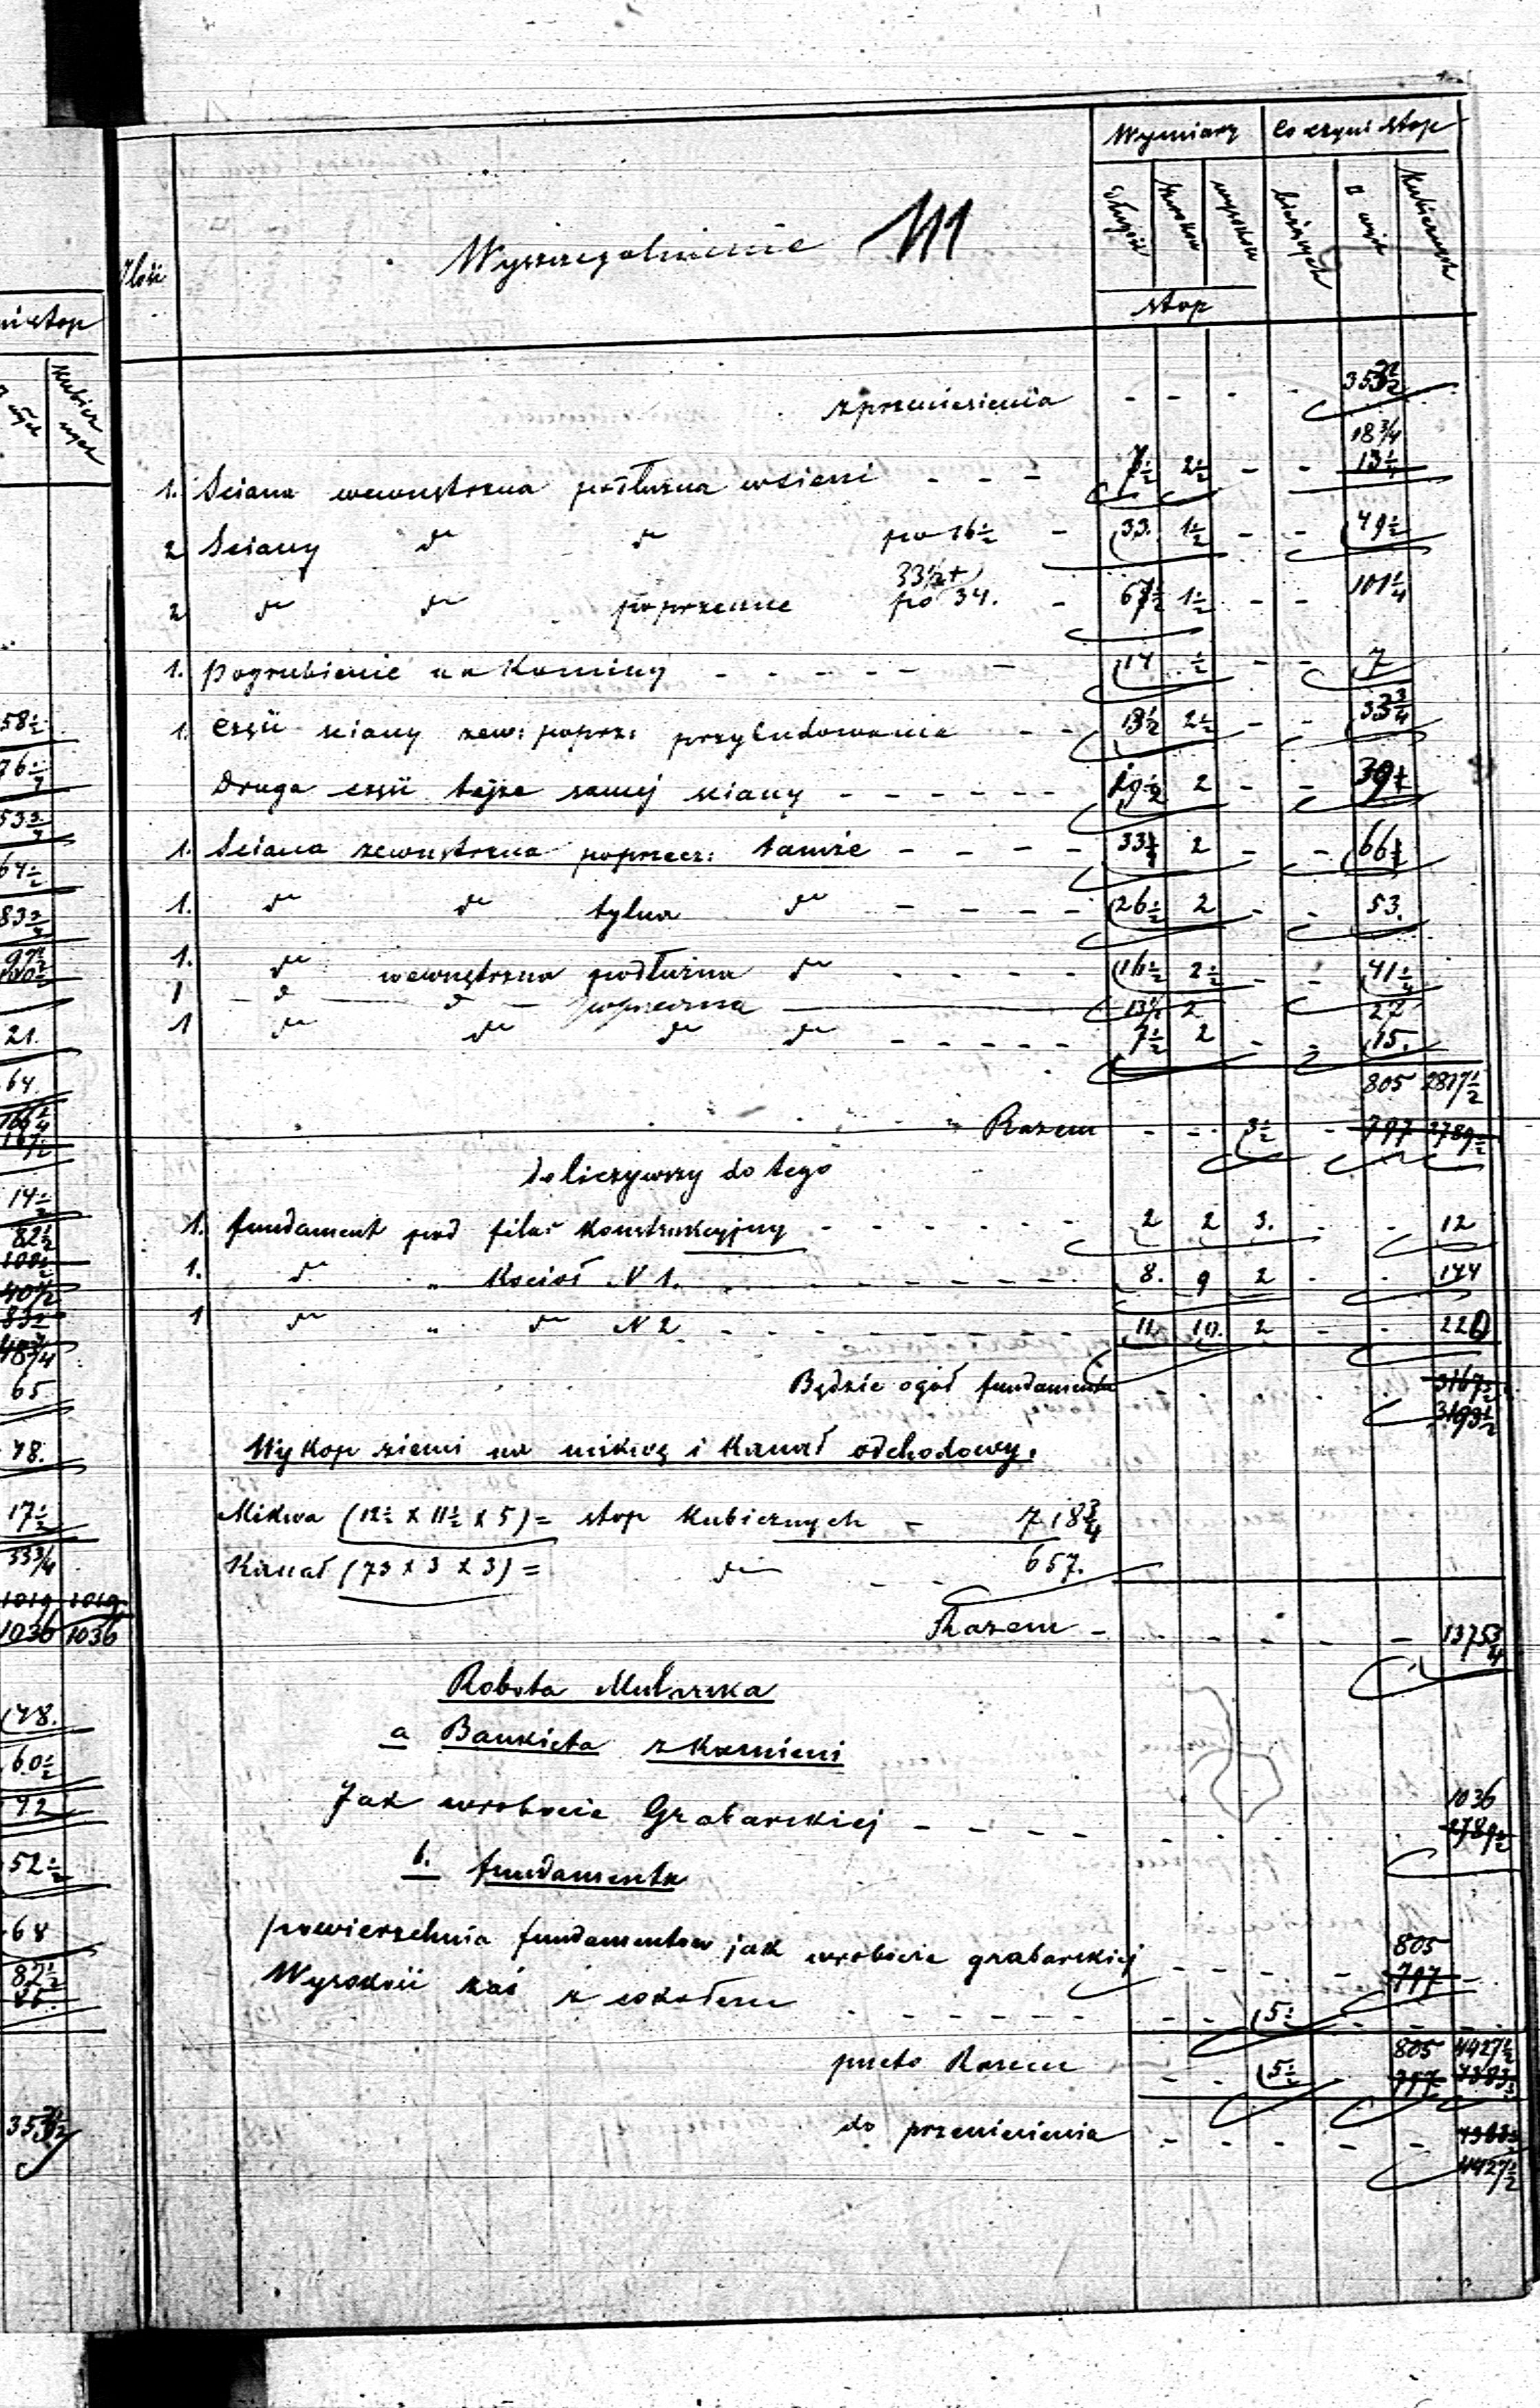 Wymiary Co czyni stop
Ilość Wyszczegolnienie długość szerokość wysokość bieżących kubicznych
stop
z przeniesienia - - - -
18 3/4
1. Sciana wewnętrzna podłużna w sieni - - - 7 1/2 2 1/2 - - 13 1/4
2 Sciany do do po 16 1/2 - 33. 1 1/2 - - 49 1/2
33 1/2 +
2 do do poprzeczne po 34. - 67 1/2 1 1/2 - - 101 1/4
1. Pogrubienie na Kominy - - - - - - 14 1/2 - - 7
1. Część sciany zew: poprz: przybudowania - - 13 1/2 2 1/2 - - 33 3/4
Druga część tejże samej sciany - - - - - - 19 1/2 2 - - 39
1. Sciana zewnętrzna poprzecz: tamże - - - - 33 1/4 2 - - 66 1/2
1. do do tylna do - - - - 26 1/2 2 - - 53.
1. do wewnętrzna podłużna do - - - - 16 1/2 2 1/2 - - 41 1/4
1 - do - do - poprzeczna 13 1/2 2 27
1 do do do do - - - - - 7 1/2 2 - - 15.
805 2817 1/2
Razem - - 3 1/2 - 797 2789 1/2
Doliczywszy do tego
1. fundament pod filar Konstrukcyjny - - - - - - 2 2 3. - - 12
1. do " Kocioł N 1. - - - - - - - 8. 9 2 - - 144
1 do " do N 2 - - - - - - - - 11. 10. 2 - - 220
Będzie ogół fundamenta - - - - - 3167 1/2
3193 1/2
Wykop ziemi na mikwę i Kanał odchodowy.
Mikwa (12 1/2 x 11 1/2 x 5) = stop Kubicznych - 718 3/4
Kanał (73 x 3 x 3) = do - - 657.
Razem - - - - - - - 1375 3/4
Robota Mularska
a Bankieta z Kamieni
1036
Jak w robocie Grabarskiej - - - - - - - - - 2789 1/2
b. fundamenta
powierzchnia fundamentow jak w robocie grabarskiej - - - - - 805
797 -
Wysokość zaś z cokołem - - - - - - - - 5 1/2 - - -
805 4427 1/2
przeto Razem - - 5 1/2 797 4383 1/2
do przeniesienia - - - - - 4383 1/2
4427 1/2
ni stop
Kubicz
nych
58 1/2
76 1/4
53 3/4
64 1/2
83 3/4
21.
64.
14 1/2
82 1/2
40 1/2
48 3/4
65
78.
17 1/2
33 3/4
1019 1019
1036 1036
78.
60 1/2
92
52 1/2
68
82 1/2